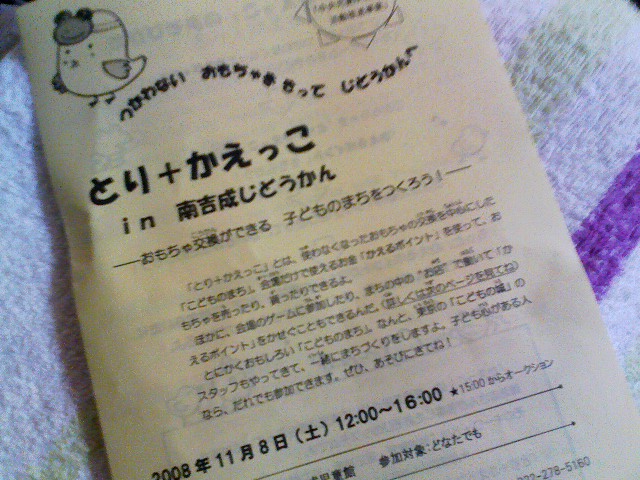 つかわない おもちゃを もって じどうかんへ
とり+かえっこ
in 南吉成じどうかん
―おもちゃ交換ができる 子どものまちをつくろう!―
「とり+かえっこ」とは、使わなくなったおもちゃの交換を中心にした
「こどものまち」。会場だけで使えるお金「かえるポイント」を使って、お
もちゃを売ったり、買ったりできるよ。
ほかに、会場のゲームに参加したり、まちの中の"お店"で働いて「か
えるポイント」をかせぐこともできるんだ。(詳しくは次のページを見てね)
とにかくおもしろい「こどものまち」。なんと、東京の「こどもの城」の
スタッフもやってきて、一緒にまちづくりをしますよ。子ども心がある人
なら、だれでも参加できます。ぜひ、あそびにきてね!
2008年11月8日(土)12:00~16:00 ★15:00からオークション
児童館 参加対象:どなたでも
022-278-5160